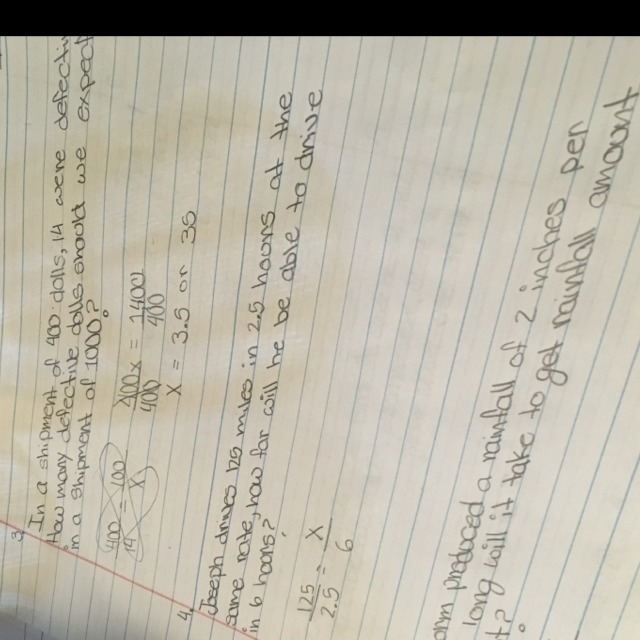 3. In a shipment of 400 dolls, 14 were defectiv
How many defective dolls should we expect
in a shipment of 1000?
400/14 = 100/x
400x/400 = 1400/400
x = 3.5 or 35
4. Joseph drives 125 miles in 2.5 hours at the
same rate, how far will he be able to drive
in 6 hours?
125/2.5 = x/6
produced a rainfall of 2 inches per
long will it take to get rainfall amount